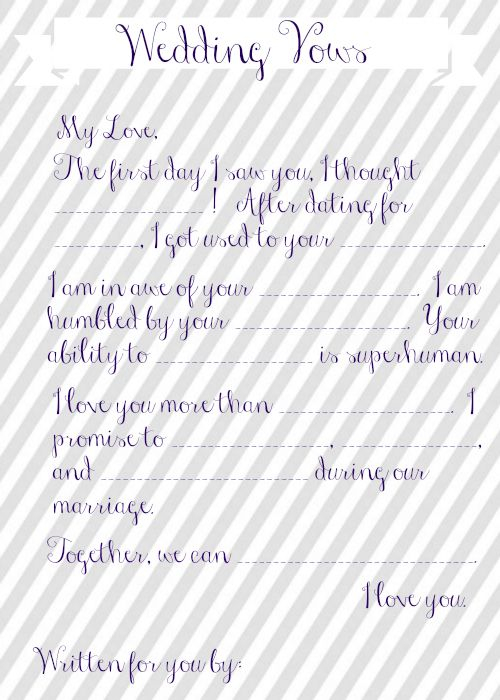 Wedding Vows
My Love,
The first day I saw you, I thought
____________! After dating for
_______, I got used to your ____________.
I am in awe of your _____________. I am
humbled by your ______________. Your
ability to _____________ is superhuman.
I love you more than ______________. I
promise to _____________, ___________,
and _________________ during our
marriage.
Together, we can ___________________.
I love you.
Written for you by: